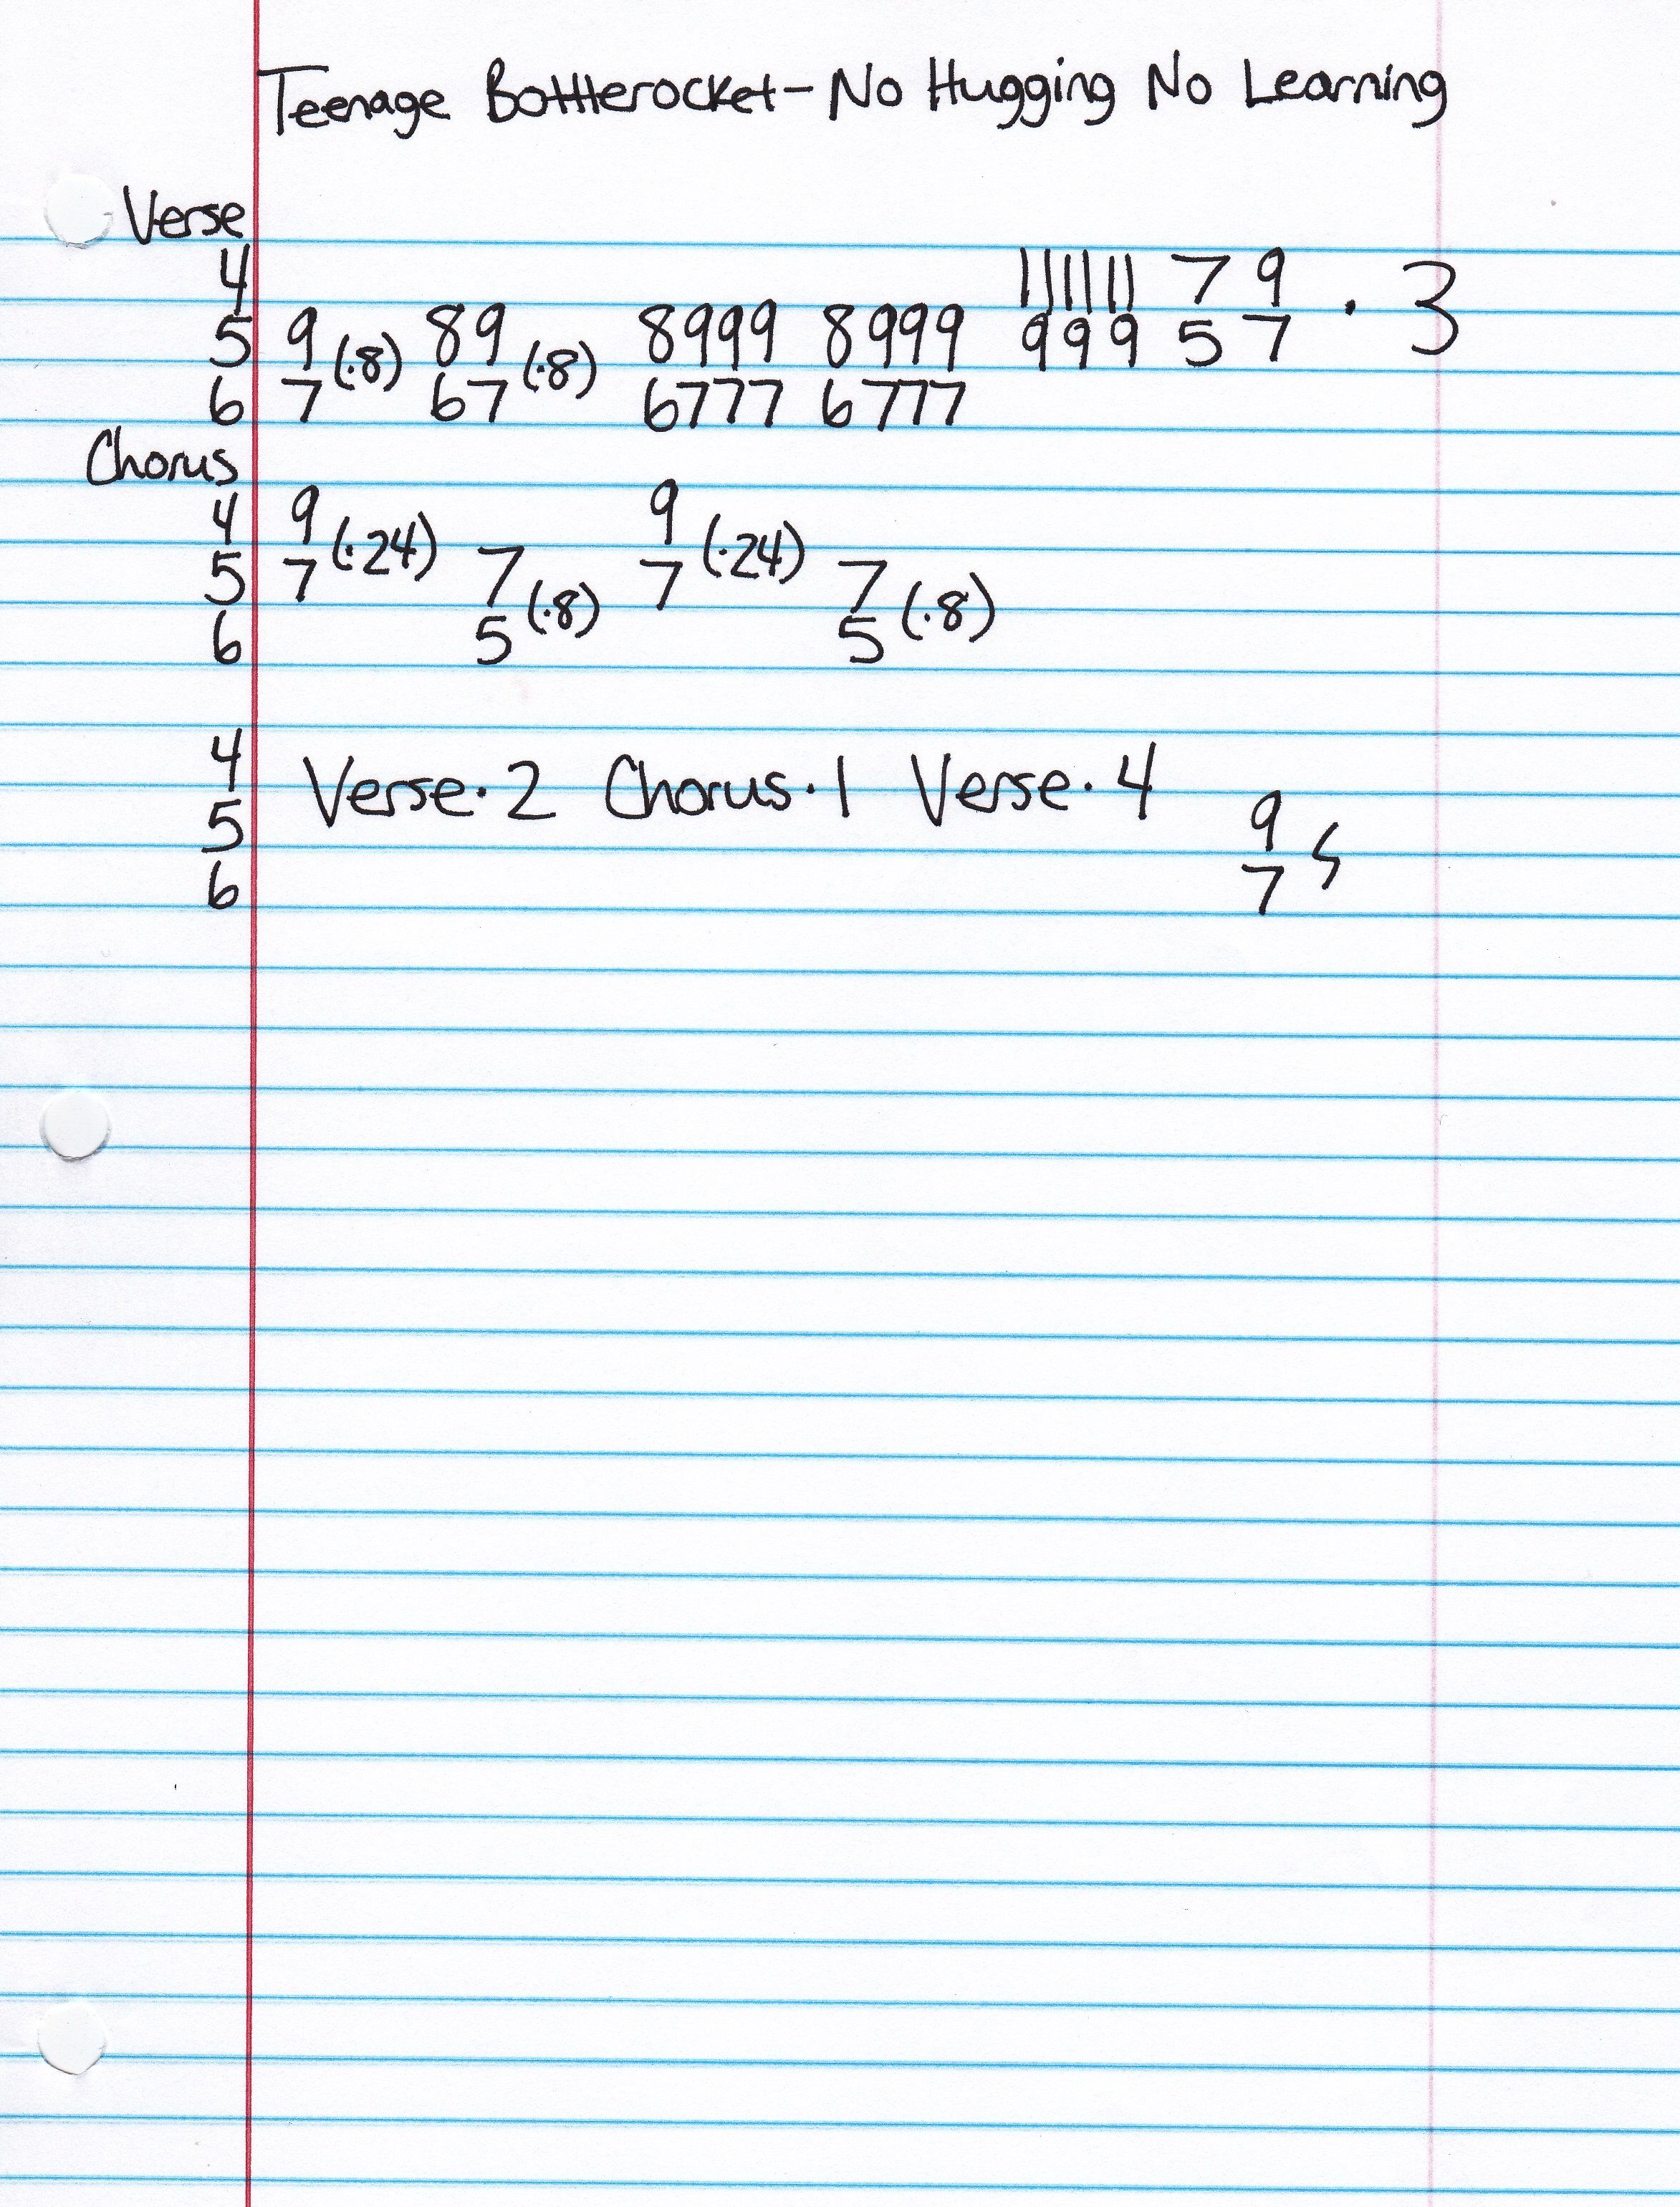 Teenage Bottlerocket - No Hugging No Learning
Verse
4 11 11 11 7 9 · 3
5 9 (·8) 89 (·8) 8999 8999 9 9 9 5 7
6 7 67 6777 6777
Chorus
4 9 (·24) 9 (·24)
5 7 7 (·8) 7 7 (·8)
6 5 5
4 Verse · 2 Chorus · 1 Verse · 4
5 9
6 7